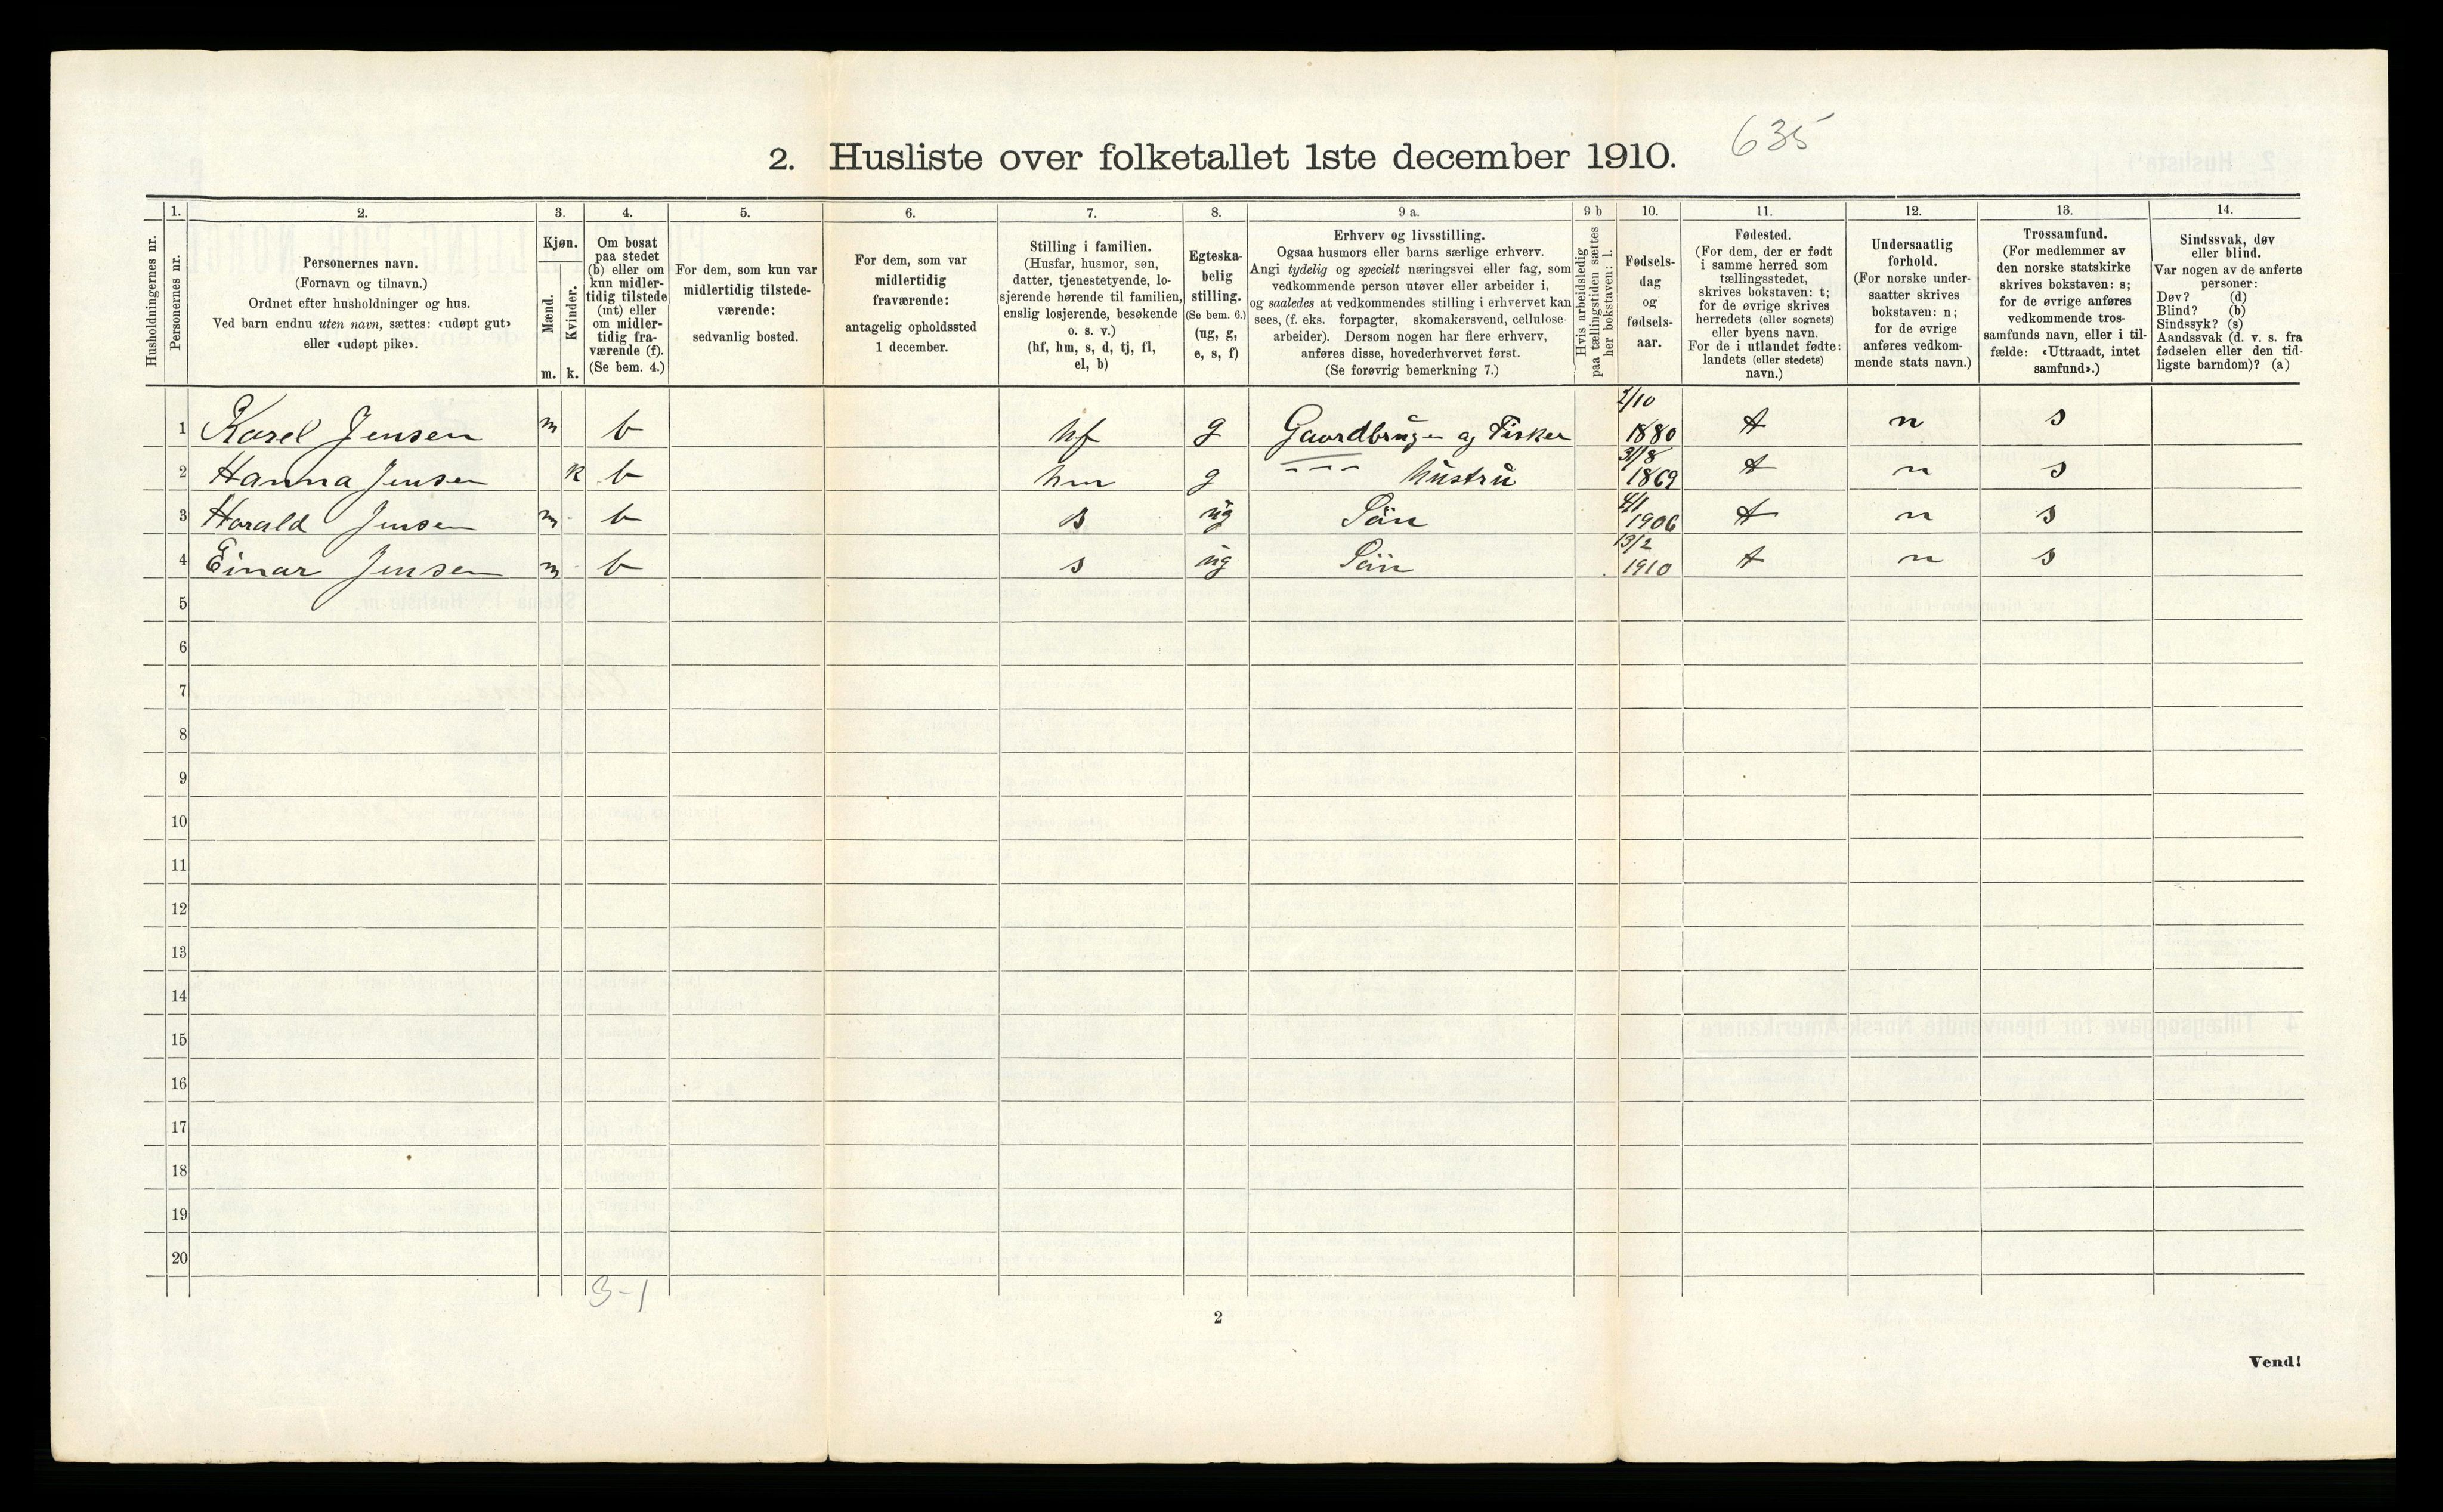 635
2. Husliste over folketallet 1ste december 1910.
Husholdningernes nr.
1.
Personernes nr.
2.
Personernes navn.
(Fornavn og tilnavn.)
Ordnet efter husholdninger og hus.
Ved barn endnu uten navn, sættes: «udøpt gut»
eller «udøpt pike».
3.
Kjøn.
Mænd.
Kvinder.
m. k.
4.
Om bosat
paa stedet
(b) eller om
kun midler-
tidig tilstede
(mt) eller
om midler-
tidig fra-
værende (f).
(Se bem. 4.)
5.
For dem, som kun var
midlertidig tilstede-
værende:
sedvanlig bosted.
6.
For dem, som var
midlertidig
fraværende:
antagelig opholdssted
1 december.
7.
Stilling i familien.
(Husfar, husmor, søn,
datter, tjenestetyende, lo-
sjerende hørende til familien,
enslig losjerende, besøkende
o. s. v.)
(hf, hm, s, d, tj, fl,
el, b)
8.
Egteska-
belig
stilling.
(Se bem. 6.)
(ug, g,
e, s, f)
9 a.
Erhverv og livsstilling.
Ogsaa husmors eller barns særlige erhverv.
Angi tydelig og specielt næringsvei eller fag, som
vedkommende person utøver eller arbeider i,
og saaledes at vedkommendes stilling i erhvervet kan
sees, (f. eks. forpagter, skomakersvend, cellulose-
arbeider). Dersom nogen har flere erhverv,
anføres disse, hovederhvervet først.
(Se forøvrig bemerkning 7.)
9 b
Hvis arbeidsledig
paa tællingstiden sættes
her bokstaven: l.
10.
Fødsels-
dag
og
fødsels-
aar.
11.
Fødested.
(For dem, der er født
i samme herred som
tællingsstedet,
skrives bokstaven: t;
for de øvrige skrives
herredets (eller sognets)
eller byens navn.
For de i utlandet fødte:
landets (eller stedets)
navn.)
12.
Undersaatlig
forhold.
(For norske under-
saatter skrives
bokstaven: n;
for de øvrige
anføres vedkom-
mende stats navn.)
13.
Trossamfund.
(For medlemmer av
den norske statskirke
skrives bokstaven: s;
for de øvrige anføres
vedkommende tros-
samfunds navn, eller i til-
fælde: «Uttraadt, intet
samfund».)
14.
Sindssvak, døv
eller blind.
Var nogen av de anførte
personer:
Døv? (d)
Blind? (b)
Sindssyk? (s)
Aandssvak (d. v. s. fra
fødselen eller den tid-
ligste barndom)? (a)
1 Karel Jensen m b hf g og Fisker 1880 t n s
2 Hanna Jensen k b hm g --- hustru 31/8 1869 t n s
3 Harald Jensen m b s ug Sön 4/1 1906 t n s
4 Einar Jensen m b s ug Sön 13/2 1910 t n s
5
6
7
8
9
10
11
12
13
14
15
16
17
18
19
20
3-1
2
Vend!